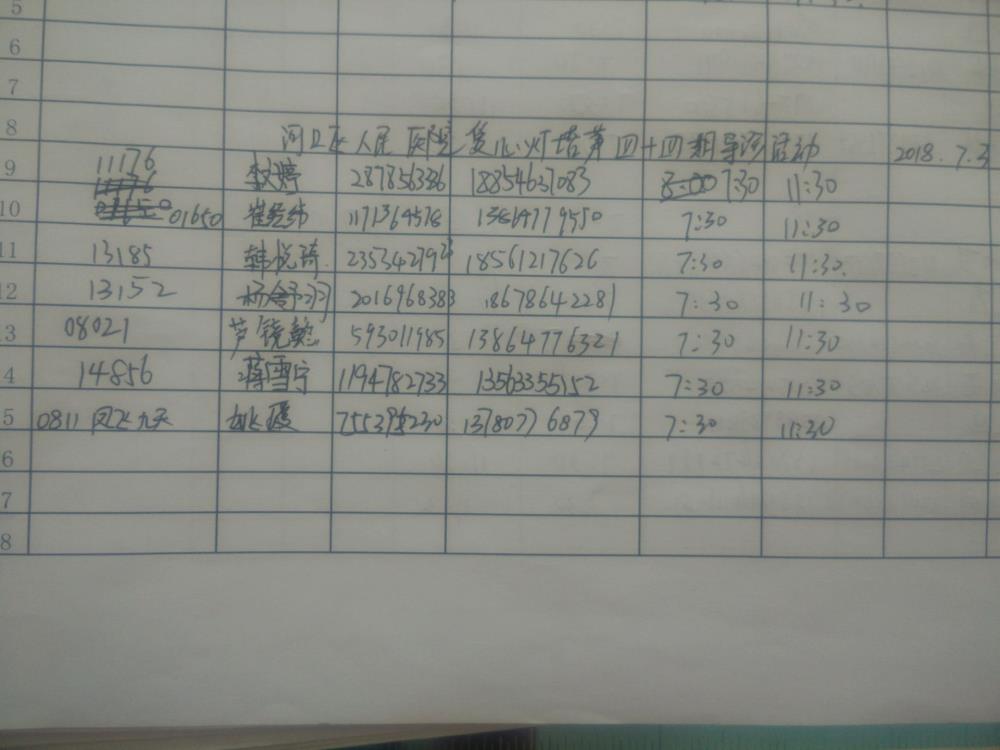 5
6
7
8 河口区人民医院爱心灯塔第四十四期导诊活动 2018.7.3
9 11176 李婷 287856336 18854637083 7:30 11:30
10 01650 崔经纬 1171364578 13864779550 7:30 11:30
11 13185 韩悦琦 2353427923 18561217626 7:30 11:30
12 13152 2016968383 18678642281 7:30 11:30
13 08021 芦锐懿 593011985 13864776321 7:30 11:30
4 14856 蒋雪宁 1194782733 13563355152 7:30 11:30
5 0811 凤飞九天 姚霞 13780776879 7:30 11:30
6
7
8